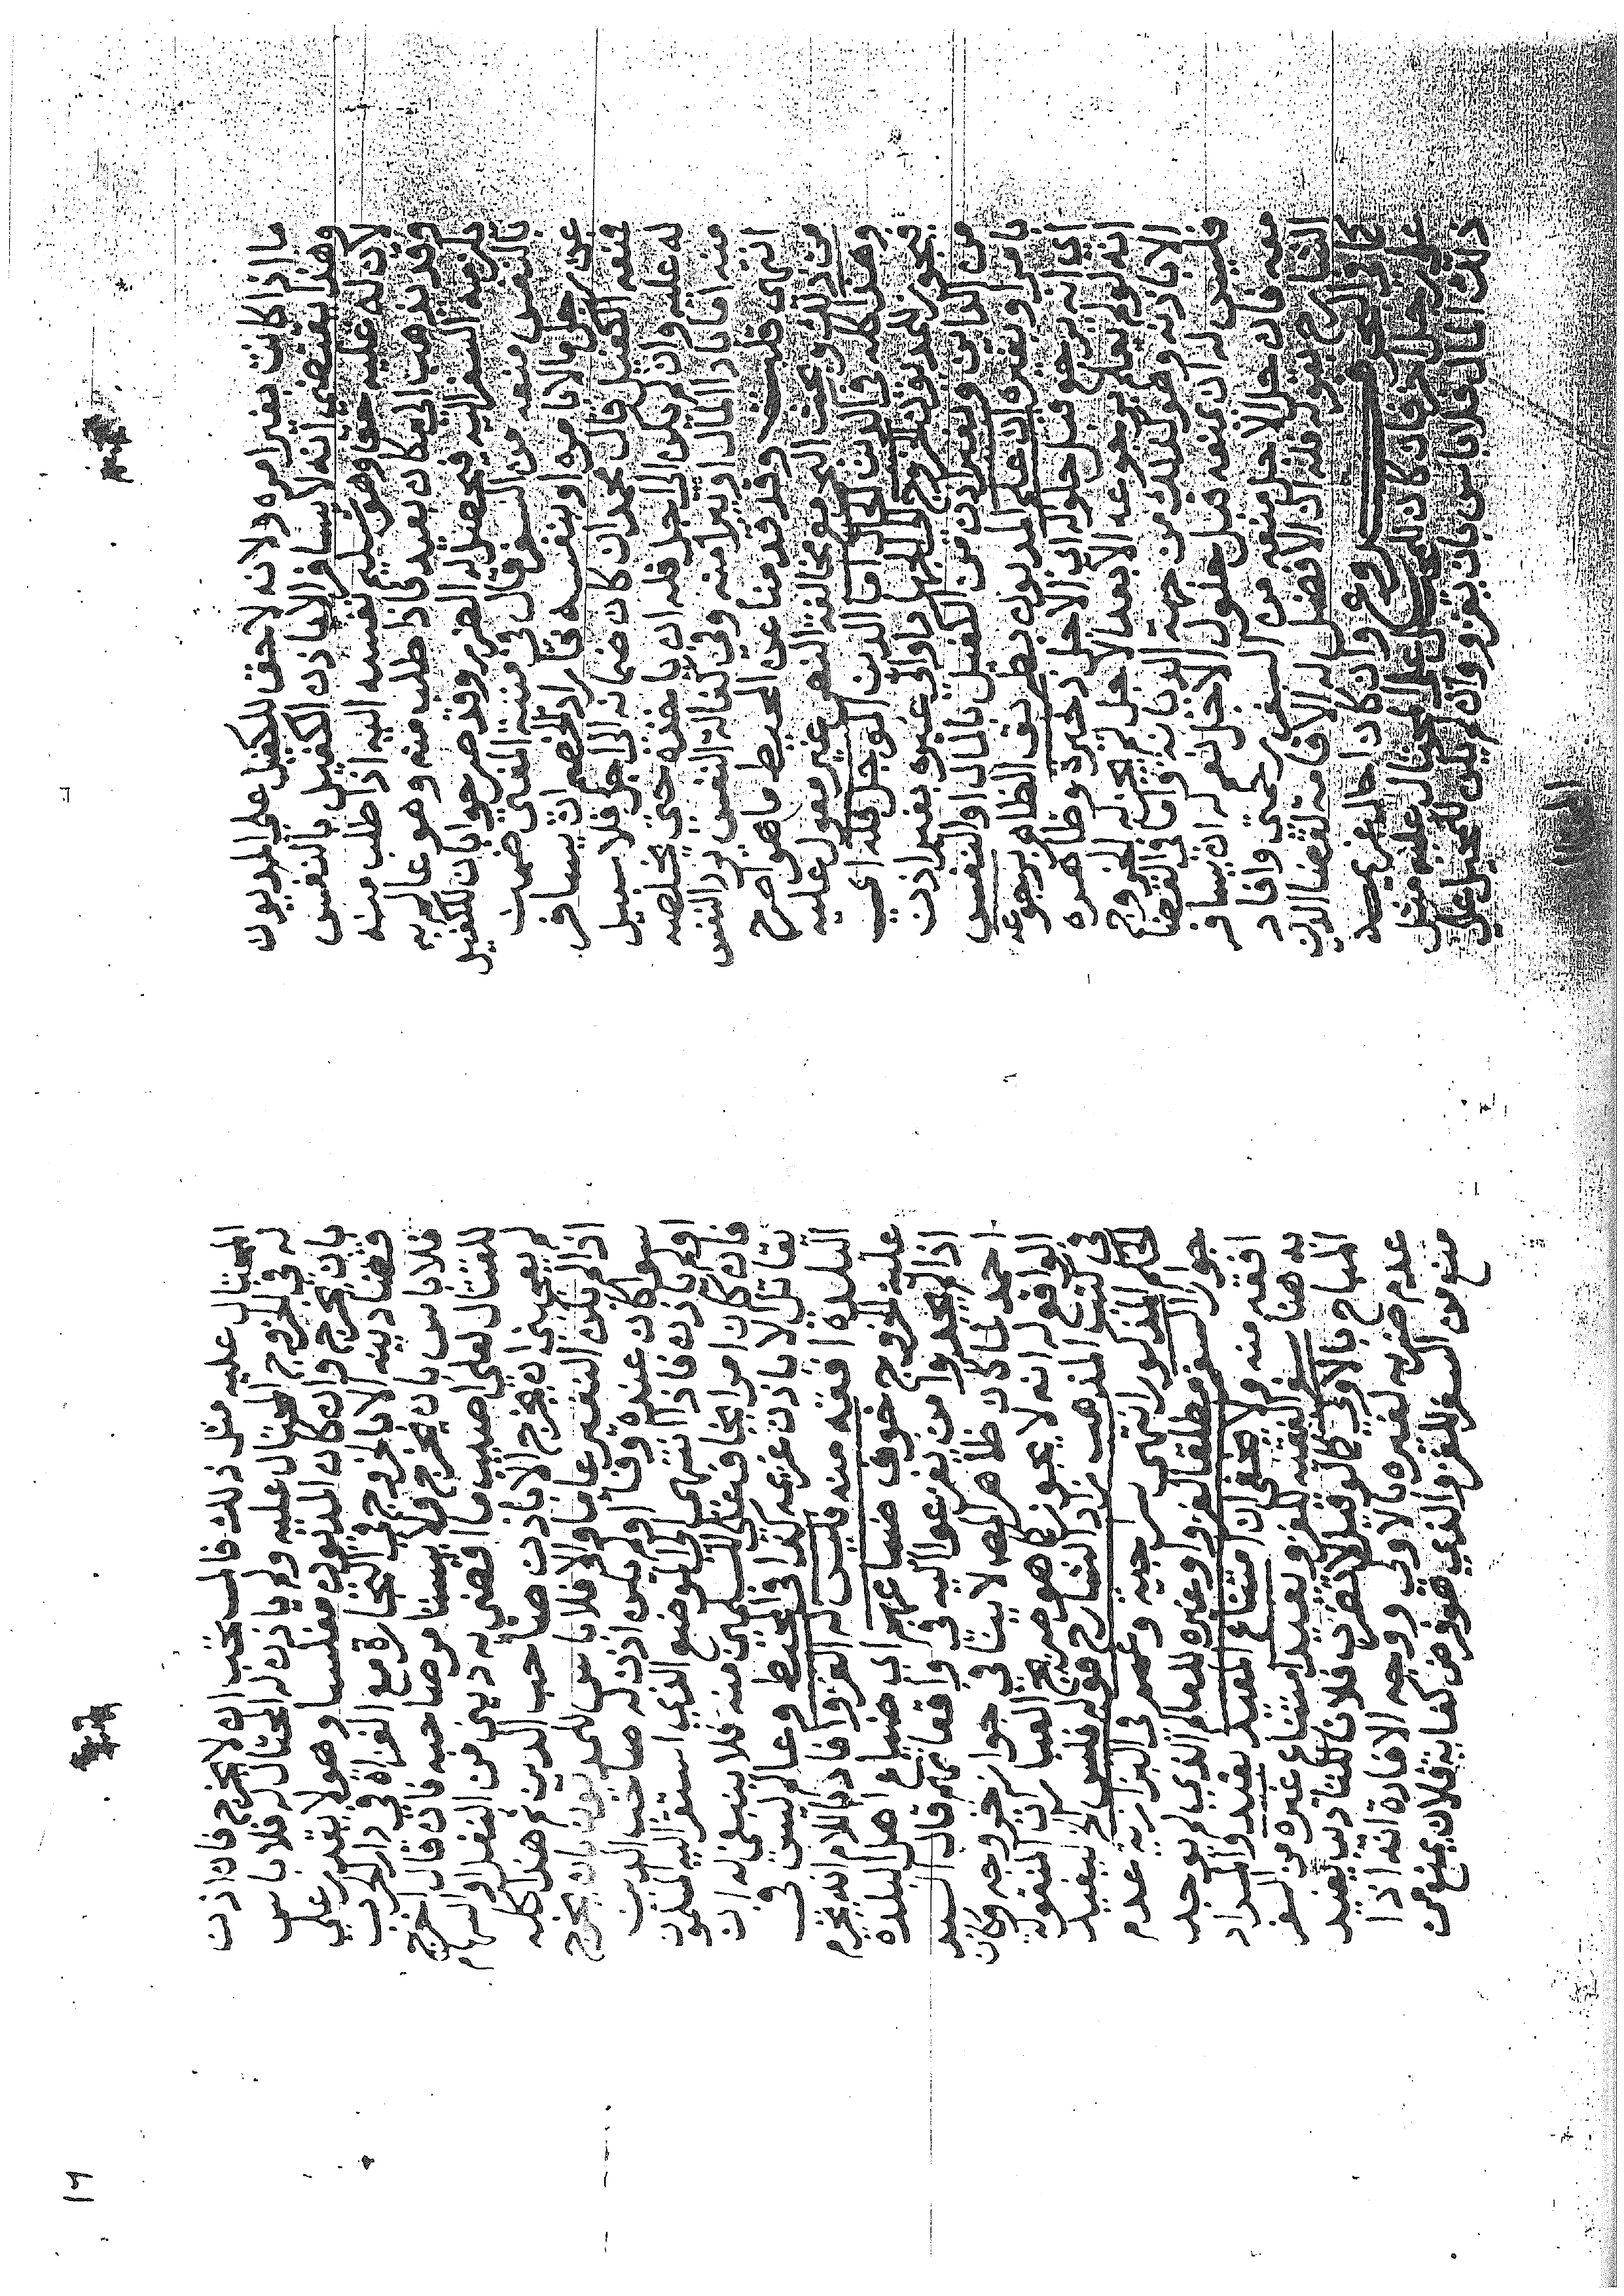 ما اذا كانت بغير امره ولانه لا حق للكفيل على المديون
وهذا يقتضي انه لا يسافر الا باذن الكفيل بالنفس
لان له عليه حقا وهو تسليم نفسه اليه اذا طلب منه
وقد يذهب الى مكان بعيد فاذا طلب منه وهو عالم به
يلزمه السفر اليه فيحصل له الضرر وقد صرحوا بان للكفيل
بالنفس منعه من السفر قال في منية المفتي ضمن
عن رجل مالا بامره او بنفسه فاراد الخصم ان يسافر
فمنعه الكفيل قال محمد ان كان ضمانه الى اجل فلا سبيل
له عليه وان لم يكن الى اجل فله ان ياخذه حتى يخلصه
منه اما باداء المال او يبرا منه وفي كفالة النفس يرد النفس
انتهى قلت وقد قدمنا عن المحيط ما هو اصرح
من ذلك وعن البحر مخالفة النهر غير معول عليه
وهذا كله في الدين الحال اما الدين الموجل فله اي
فيجوز للمديون الخروج الى الجهاد او الى غيره بغير اذن
من الداين وبغير اذن من الكفيل بالمال او النفس
بامره وبغيره ان علم المديون بطريق الظاهر برجوعه
اي انه يرجع قبل حلوله اي الاجل ذخيرة وظاهره
انه لو لم يعلم برجوعه الا بعد الاجل لم يجز له الخروج
الا باذنه وهو كذلك من جهة الديانة واما في القضا
فليس له ان يمنعه قبل حلول الاجل نعم له ان يسافر
معه فان حل الاجل منعه من السفر حموي وافاد
الشارح بقوله فله ان الافضل له الاقامة لقضا الدين
كما في البحر فروع وان كان احال غريمه
على رجل اخر فان كان للمحيل على المحتال عليه مثل
ذلك المال فلا باس بان يغزو وان لم يكن للمحيل على
المحتال عليه مثل ذلك فالمستحب ان لا يخرج فان اذن
له في الخروج المحتال عليه ولم ياذن له المحتال له فلا باس
بان يخرج وان كان المديون مفلسا وهو لا يقدر على
قضا دينه الا بالخروج في التجارة مع الغزاة في دار الحرب
فلا باس بان يخرج ولا يستامر صاحبه فان قال اخرج
للقتال لعلي اصيب ما اقضي به ديني من النفل او السهام
لم يعجبني ان يخرج الا باذن صاحب الدين ثم هذا كله
اذا لم يكن النفير عاما والا فلا باس للمديون بان يخرج
سوا كان عنده وفا او لم يكن اذن له صاحب الدين
او لم ياذن فاذا انتهى الى الموضع الذي استقر اليه المسلمون
فان كان امر يخاف على المسلمين منه فلا ينبغي له ان
يقاتل الا باذن غريمه كذا في المحيط وعالم ليس في
البلدة افقه منه فليس له الغزو افاد بالكلام انه يحرم
عليه الخروج خوف ضياعهم اي ضياع اهل البلدة
اذا لم يجدوا من يفزعوا اليه في واقعاتهم قال السيد
احمد لما كان ظاهر المص لا ينافي جواز خروجه وكان
الواقع انه لا يجوز كما هو صريح العبارات المنقولة
في كتب المذهب زاد الشارح قوله فليس الخ ليفيد
الحكم المذكور انتهى سراجية وعمم في البزازية عدم
جواز السفر مطلقا لغزو او غيره للعالم الذي لم يوجد
افقه منه ولا يخفى ان امتناع المقيد يفيد والمراد
به هنا سفر الفقيه للغزو يفيد امتناع غيره من السفر
المباح بالاولى كالوقيل لا تضرب فلانا للتاديب يفيد
عدم ضربه لغيره بالاولى ووجه الافادة انه اذا
منع من السفر للغزو الذي هو فرض كفاية فلان يمنع من
١٦